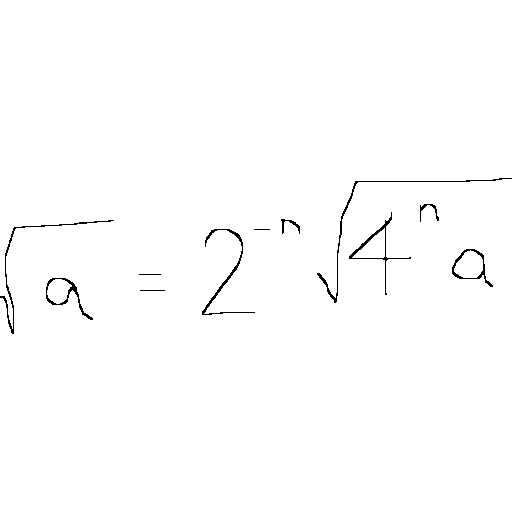 √a = 2⁻ⁿ √(4ⁿ a)